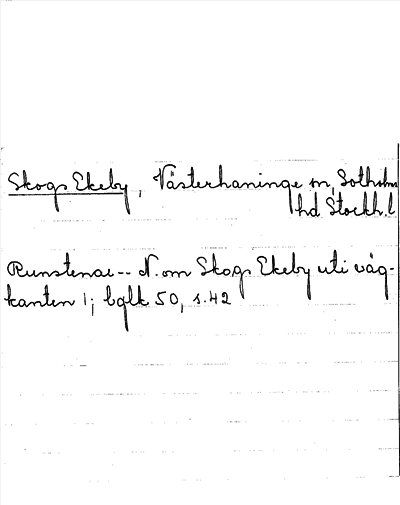 Skogs Ekeby, Västerhaninge sn, Sotholms
hd Stockh.l
Runstenar -- N. om Skogs Ekeby uti väg-
kanten 1; bglk 50, s. 42